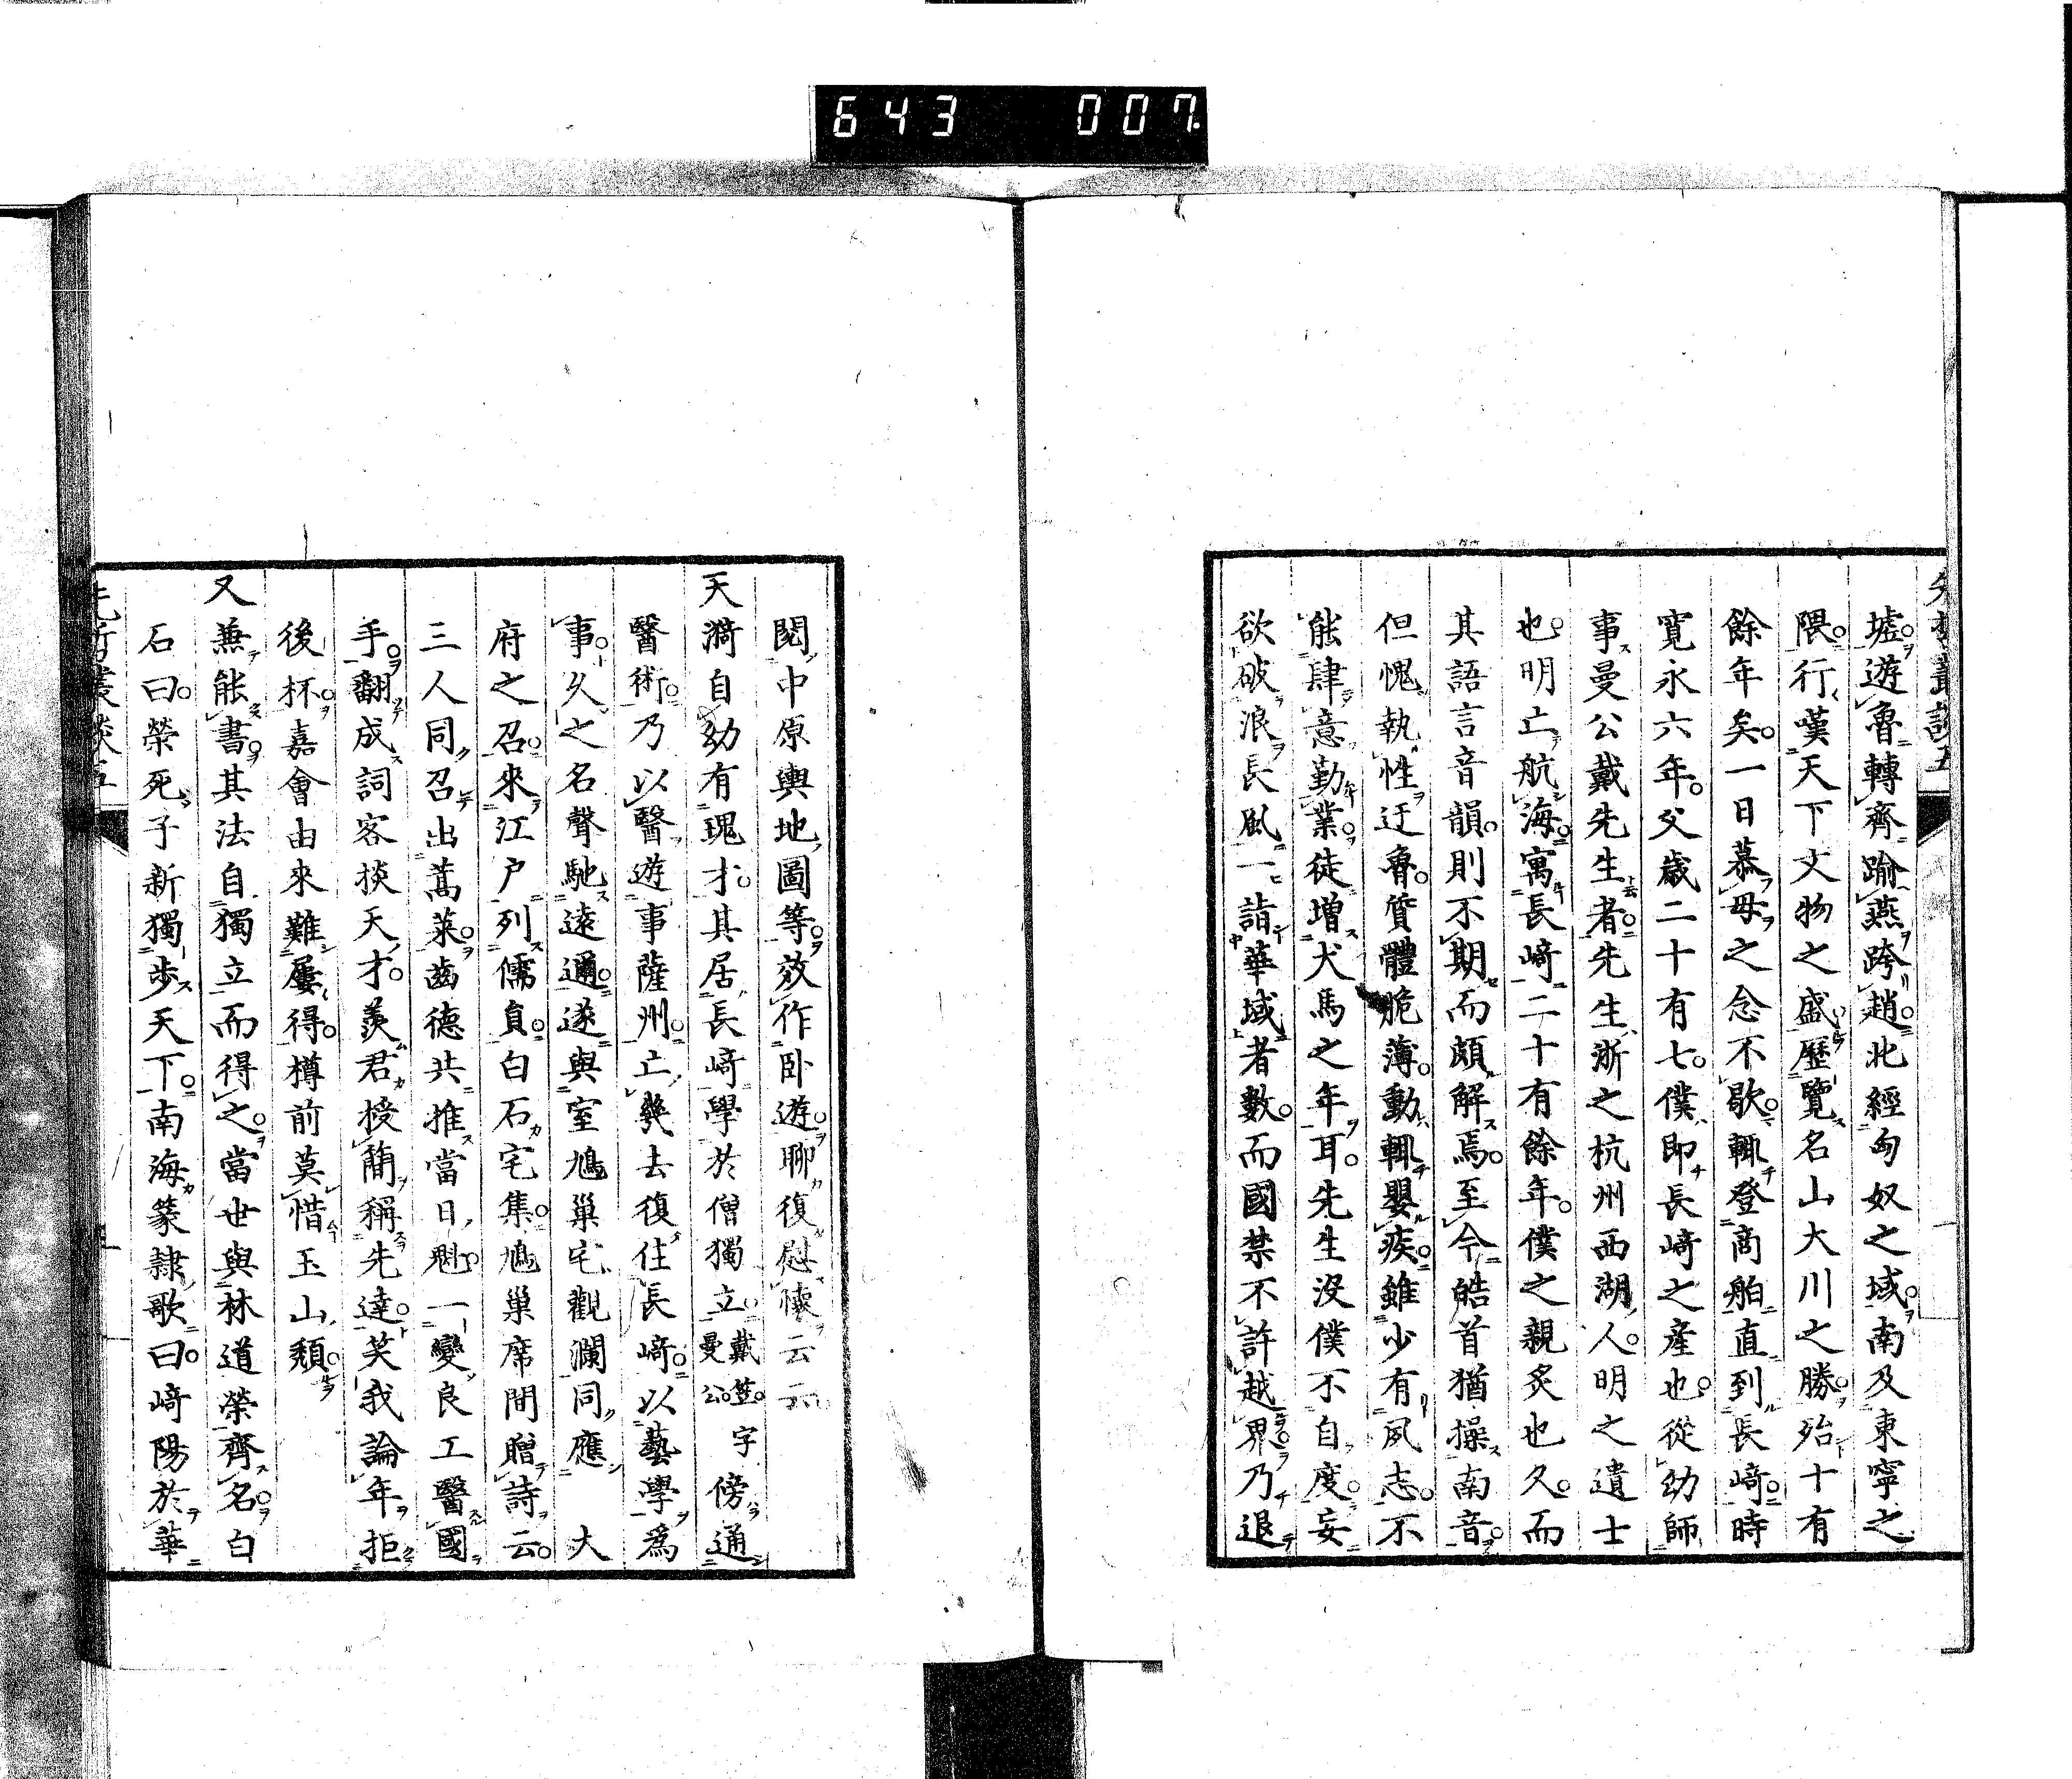 643 007
墟遊魯轉齊踰燕跨趙北經匈奴之域南及東寧之
隈行嘆天下文物之盛歷覽名山大川之勝殆十有
餘年矣一日慕母之念不歇輒登商舶直到長﨑時
寛永六年父歳二十有七僕即長﨑之産也從幼師
事曼公戴先生者先生浙之杭州西湖人明之遺士
也明亡航海寓長﨑二十有餘年僕之親炙也久而
其語言音韻則不期而頗解焉至今皓首猶操南音
但愧執性迂魯質體脆薄動輒嬰疾雖少有夙志不
能肆意勤業徒増犬馬之年耳先生沒僕不自度妄
欲破浪長風一詣華域者數而國禁不許越界乃退
閲中原輿地圖等效作卧遊聊復慰懐云云
天漪自幼有瑰才其居長﨑學於僧獨立戴笠字曼公傍通
醫術乃以醫遊事薩州亡幾去復住長﨑以藝學爲
事久之名聲馳遠邇遂與室鳩巢宅觀瀾同應 大
府之召來江戸列儒員白石宅集鳩巢席間贈詩云
三人同召出蒿萊齒德共推當日魁一變良工醫國
手翻成詞客掞天才羨君授簡稱先達笑我論年拒
後杯嘉會由來難屢得樽前莫惜玉山頽
又兼能書其法自獨立而得之當世與林道榮齊名白
石曰榮死子新獨歩天下南海篆隷歌曰﨑陽於華
先哲叢談五